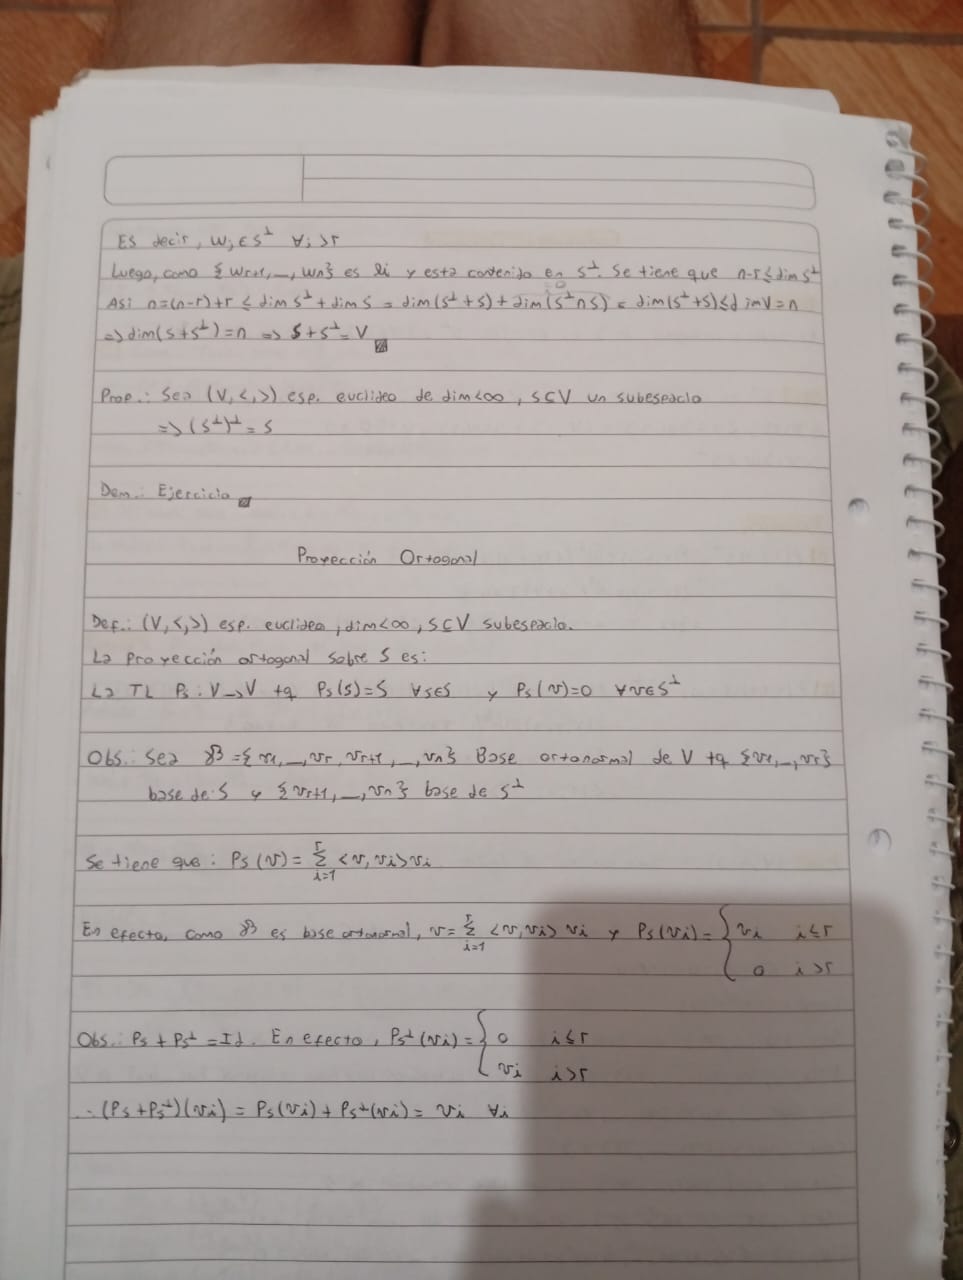 Es decir, wⱼ ∈ S^⊥ ∀ⱼ > r
Luego, como {wr+1, _, wn} es li y está contenido en S^⊥. Se tiene que n-r ≤ dim S^⊥
Así n=(n-r)+r ≤ dim S^⊥ + dim S = dim(S^⊥+S) + dim(S^⊥∩S) = dim(S^⊥+S) ≤ dim V = n
=0
=> dim(S+S^⊥) = n => S+S^⊥ = V
Prop.: Sea (V,<,>) esp. euclideo de dim<∞, S⊂V un subespacio
=> (S^⊥)^⊥ = S
Dem.: Ejercicio
Proyección Ortogonal
Def.: (V,<,>) esp. euclideo, dim<∞, S⊆V subespacio.
La proyección ortogonal sobre S es:
La TL Ps: V→V tq Ps(s)=S ∀s∈S y Ps(v)=0 ∀v∈S^⊥
Obs.: Sea B = {v1, _, vr, vr+1, _, vn} Base ortonormal de V tq {v1, _, vr}
base de S y {vr+1, _, vn} base de S^⊥
Se tiene que: Ps(v) = Σ_{i=1}^{r} <v, vi> vi
En efecto, como B es base ortonormal, v = Σ_{i=1}^{r} <v, vi> vi y Ps(vi) = { vi i≤r
0 i>r
Obs.: Ps + Ps^⊥ = Id. En efecto, Ps^⊥(vi) = { 0 i≤r
vi i>r
∴ (Ps+Ps^⊥)(vi) = Ps(vi) + Ps^⊥(vi) = vi ∀i